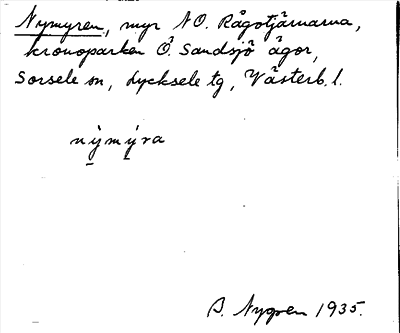 Nymyren, myr NO. Rågotjärnarna,
kronoparken Ö. Sandsjö ägor,
Sorsele sn, Lycksele tg, Västerb. l.
nỳmýra
B. Nygren 1935.